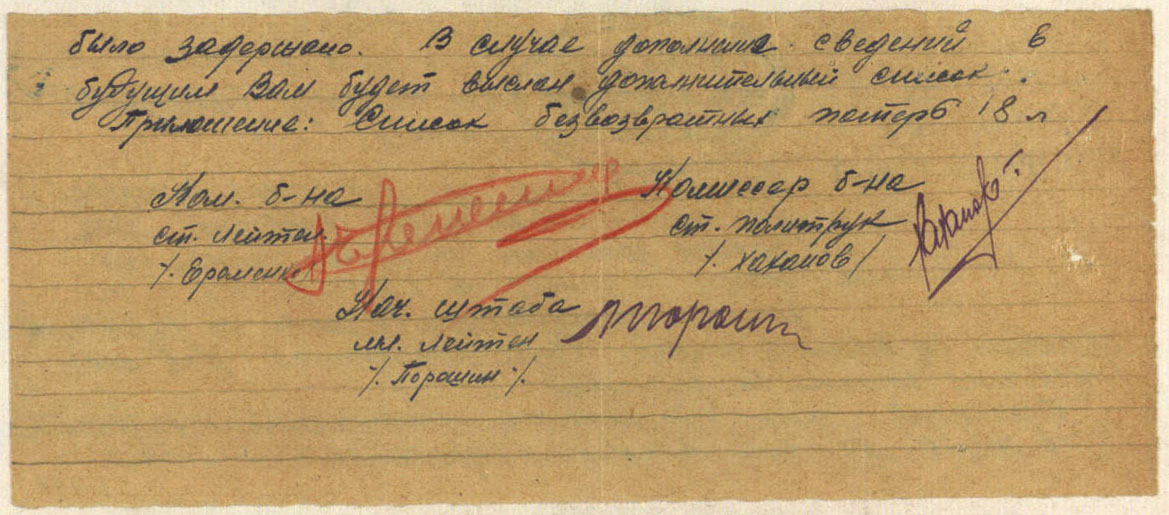 было задержано. В случае дополнила сведений в
будущим Вам будет выслан дополнительный список.
Приложение: Список безвозвратных потерь 18 л
Ком. б-на Комиссар б-на
ст. лейтен. ст. политрук
/. Еременко / /. Хаханов /
Нач. штаба
мл. лейтен
/. Порошин /.